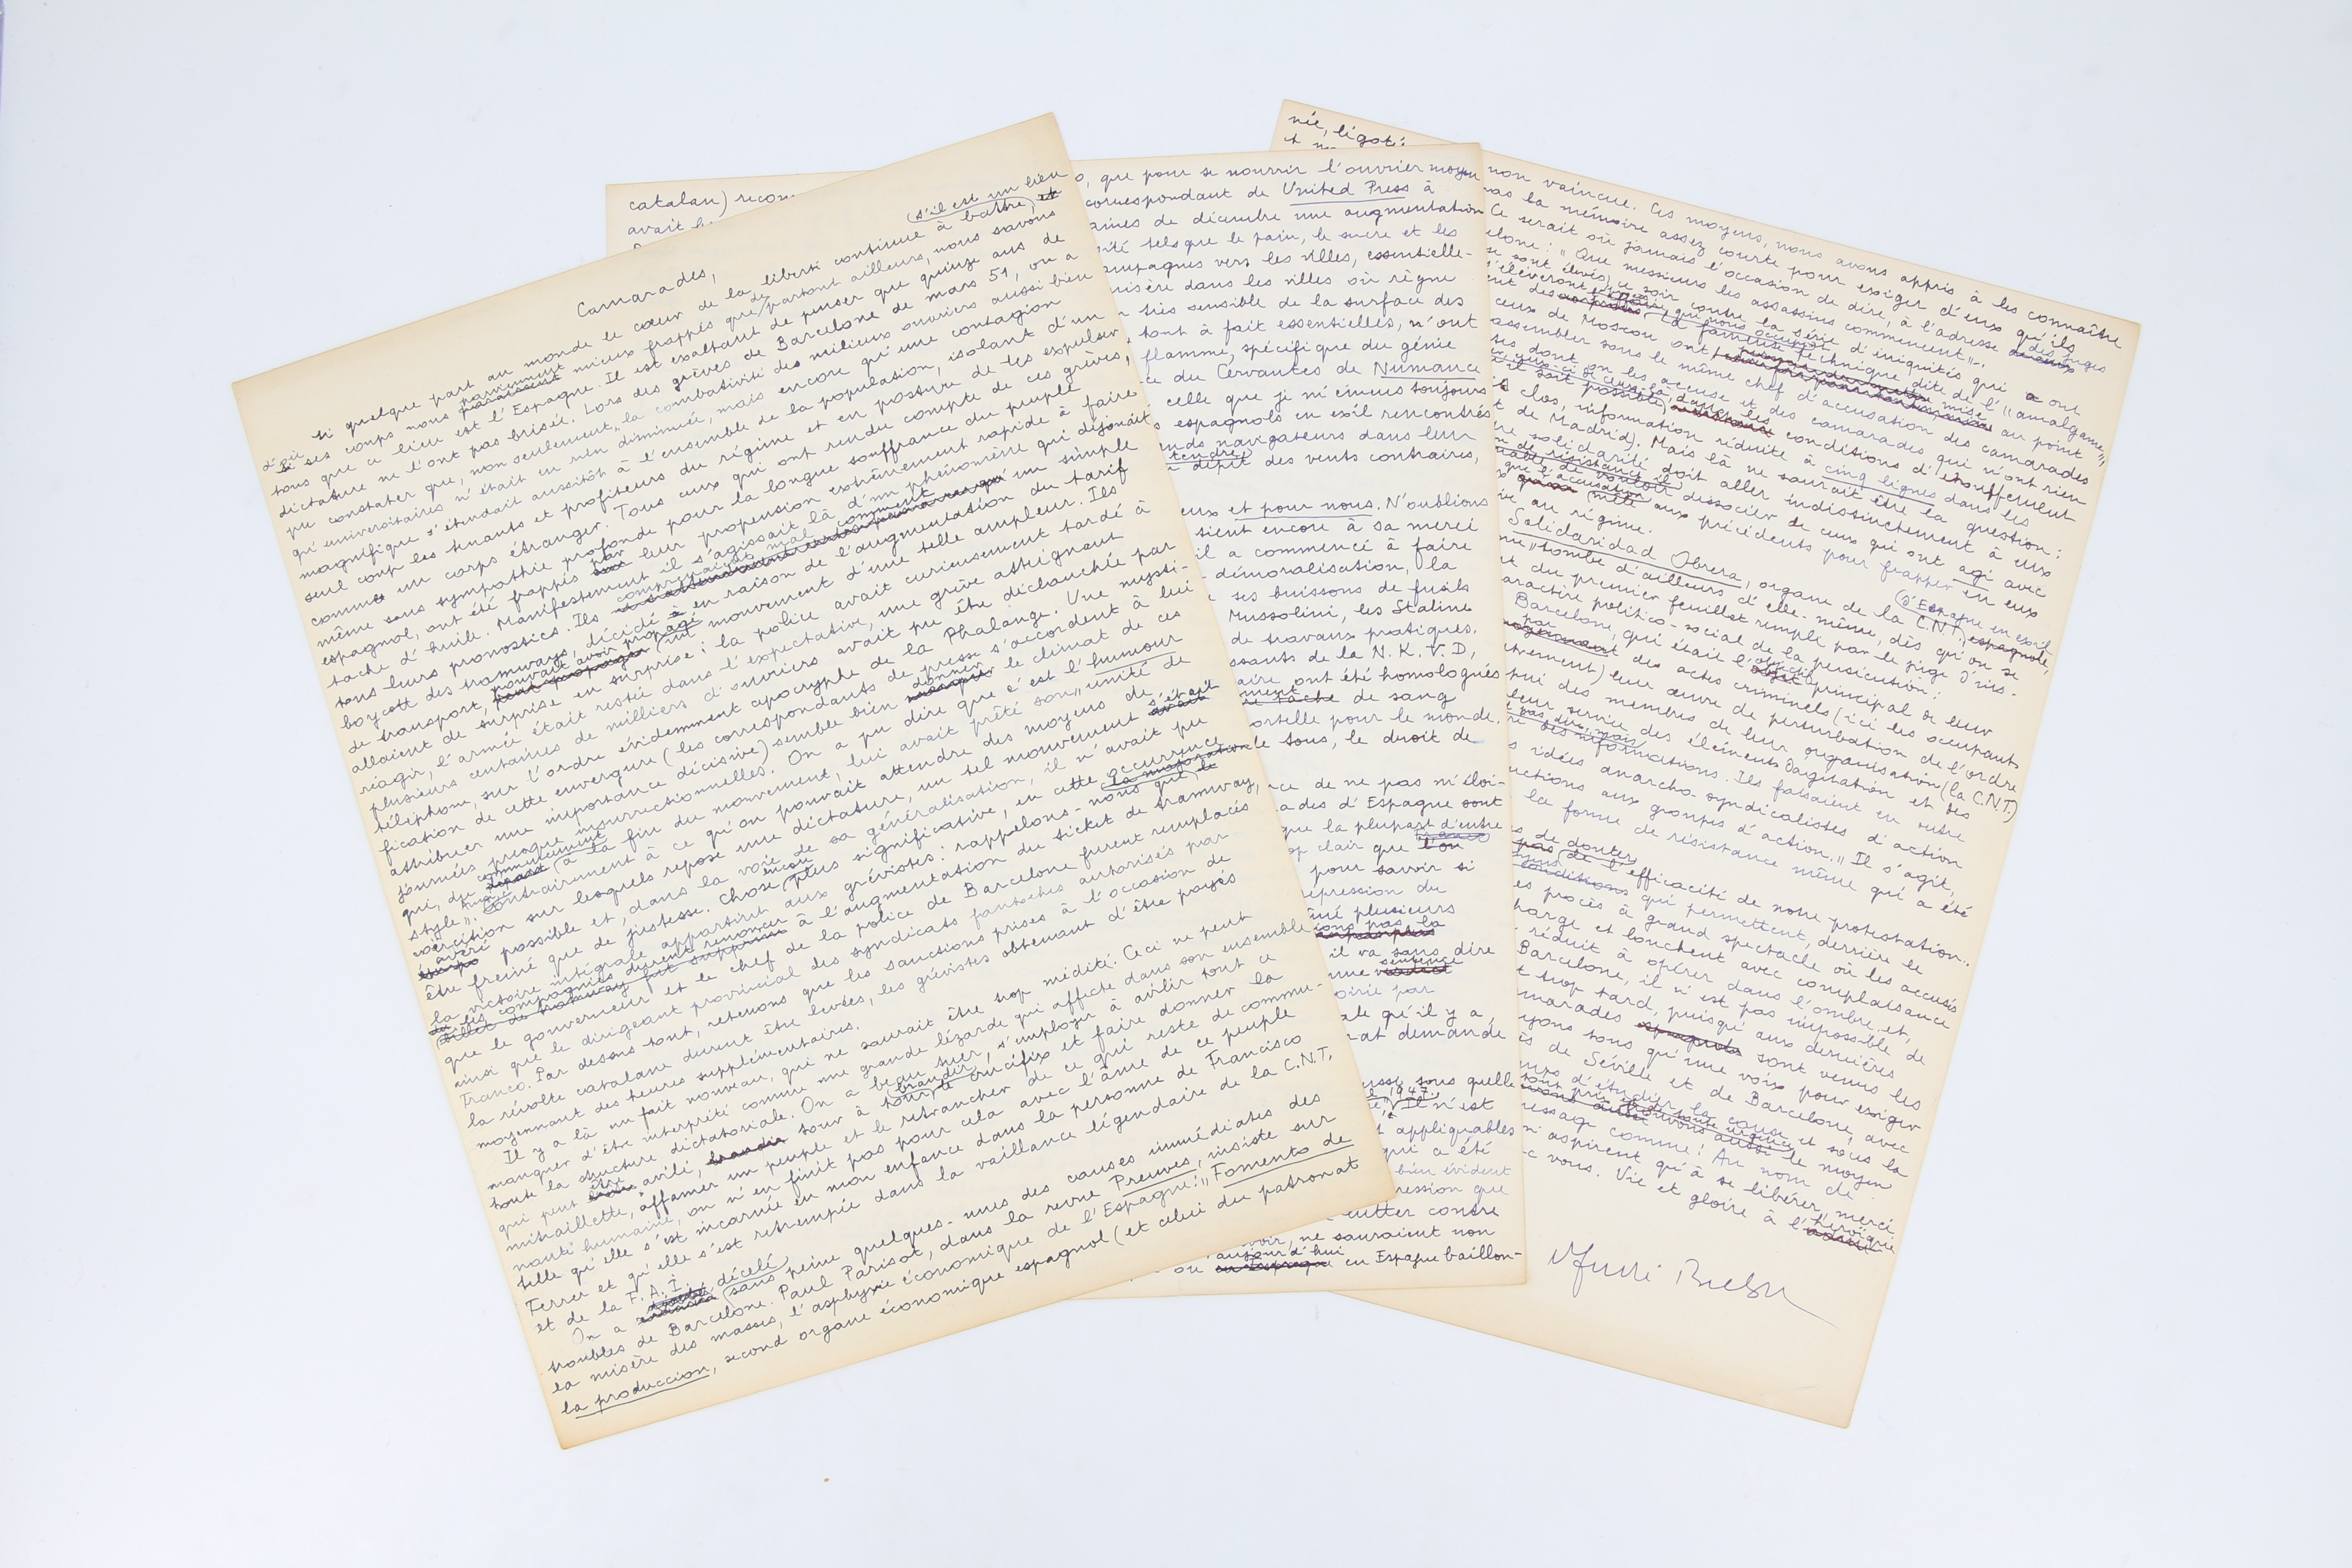 Camarades,
Si quelque part au monde le cœur de la liberté continue à battre, (s'il est un lieu et
d'où ses coups nous parviennent paraissent mieux frappés que de partout ailleurs, nous savons
tous que ce lieu est l'Espagne. Il est exaltant de penser que quinze ans de
dictature ne l'ont pas brisée. Lors des grèves de Barcelone de mars 51, on a
pu constater que, non seulement "la combativité des milieux ouvriers aussi bien
qu'universitaires n'était en rien diminuée, mais encore qu'une contagion
magnifique s'étendait aussitôt à l'ensemble de la population, isolant d'un
seul coup les tenants et profiteurs du régime et en posture de les expulser
comme un corps étranger. Tous ceux qui ont rendu compte de ces grèves,
même sans sympathie profonde pour la longue souffrance du peuple
espagnol, ont été frappés par leur propension extrêmement rapide à faire
tache d'huile. Manifestement il s'agissait là d'un phénomène qui déjouait
tous leurs pronostics. Ils comprenaient mal comment un simple
boycott des tramways, décidé en raison de l'augmentation du tarif
de transport, pouvait avoir propagé un mouvement d'une telle ampleur. Ils
allaient de surprise en surprise : la police avait curieusement tardé à
réagir, l'armée était restée dans l'expectative, une grève atteignant
plusieurs centaines de milliers d'ouvriers avait pu être déclanchée par
téléphone, sur l'ordre évidemment apocryphe de la Phalange. Une mysti-
fication de cette envergure (les correspondants de presse s'accordent à lui
attribuer une importance décisive) semble bien donner le climat de ces
journées presque insurrectionnelles. On a pu dire que c'est l'humour
qui, du commencement à la fin du mouvement, lui avait prêté son "unité de
style". Contrairement à ce qu'on pouvait attendre des moyens de
coercition sur lesquels repose une dictature, un tel mouvement s'était avait
avéré possible et, dans la voie de sa généralisation, il n'avait pu
être freiné que de justesse. Chose encore plus significative, en cette occurrence
la victoire intégrale appartint aux grévistes : rappelons-nous que la majoration le
les compagnies durent renoncer à l'augmentation du ticket de tramway,
billet de tramway fut supprimé
que le gouverneur et le chef de la police de Barcelone furent remplacés
ainsi que le dirigeant provincial des syndicats fantoches autorisés par
Franco. Par dessus tout, retenons que les sanctions prises à l'occasion de
la révolte catalane durent être levées, les grévistes obtenant d'être payés
moyennant des heures supplémentaires.
Il y a là un fait nouveau, qui ne saurait être trop médité. Ceci ne peut
manquer d'être interprété comme une grande lézarde qui affecte dans son ensemble
toute la structure dictatoriale. On a beau tuer, s'employer à avilir tout ce
qui peut être avili, brandir tour à tour le crucifix et faire donner la
mitraillette, affamer un peuple et le retrancher de ce qui reste de commu-
nauté humaine, on n'en finit pas pour cela avec l'âme de ce peuple
telle qu'elle s'est incarnée en mon enfance dans la personne de Francisco
Ferrer et qu'elle s'est retrempée dans la vaillance légendaire de la C.N.T.
et de la F.A.I.
On a décelé sans peine quelques-unes des causes immédiates des
troubles de Barcelone. Paul Parisot, dans la revue Preuves, insiste sur
la misère des masses, l'asphyxie économique de l'Espagne : "Fomento de
la produccion, second organe économique espagnol (et celui du patronat
catalan) recon
avait
o, que pour se nourrir l'ouvrier moyen
correspondant de United Press à
aines de décembre une augmentation
sité tels que le pain, le sucre et les
ampagnes vers les villes, essentielle-
misère dans les villes où règne
très sensible de la surface des
tout à fait essentielles, n'ont
flamme, spécifique du génie
ce du Cervantes de Numance
celle que je m'émeus toujours
s espagnols en exil rencontrés
nds navigateurs dans leur
tendre
dépit des vents contraires,
eux et pour nous. N'oublions
sient encore à sa merci
il a commencé à faire
démoralisation, la
ses buissons de fusils
Mussolini, les Staline
de travaux pratiques.
ssants de la N.K.V.D,
aire ont été homologués
ment tâche de sang
ortelle pour le monde.
le sous, le droit de
ce de ne pas m'éloi-
ades d'Espagne sont
que la plupart d'entre
op clair que l'on
pour savoir si
répression du
iné plusieurs
ions pas la
il va sans dire
une sentence verdict
oirie par
ale qu'il y a,
at demande
usse, sous quelle
1947. Il n'est
t appliquables
qui a été
bien évident
ression que
lutter contre
voir, ne sauraient non
ou aujourd'hui en Espagne baillon-
née, ligotée
non vaincue. Ces moyens, nous avons appris à les connaître
pas la mémoire assez courte pour exiger d'eux qu'ils
Ce serait où jamais l'occasion de dire, à l'adresse des juges
elone : "Que messieurs les assassins commencent".
se sont élevés, ce soir contre la série d'iniquités qui a ou
s'élèveront qui nous occupent
la fameuse technique dite de l'"amalgame",
ceux de Moscou ont mise au point
assembler sous le même chef d'accusation des camarades
ses dont on les accuse et des camarades qui n'ont rien
soit possible) dans les conditions d'étouffement
clos, information réduite à cinq lignes dans les
t de Madrid). Mais là ne saurait être la question :
re solidarité doit aller indistinctement à eux
de résistance il
vouloir dissocier de ceux qui ont agi avec
que l'accusation mêle aux précédents pour frapper en eux
ive au régime.
Solidaridad Obrera, organe de la C.N.T. espagnole, (d'Espagne en exil
"tombe d'ailleurs d'elle-même, dès qu'on se
t du premier feuillet rempli par le juge d'ins-
aractère politico-social de la persécution :
Barcelone, qui était l'objectif principal de leur
par des actes criminels (ici les occupants
trement) leur œuvre de perturbation de l'ordre
hui des membres de leur organisation (la C.N.T.)
leur service des éléments d'agitation et des
des informations. Ils faisaient en outre
s idées anarcho-syndicalistes d'action
uctions aux groupes d'action." Il s'agit,
la forme de résistance même qui a été
de douter
pas de l'efficacité de notre protestation.
conditions qui permettent, derrière le
es procès à grand spectacle où les accusés
harge et louchent avec complaisance
réduit à opérer dans l'ombre et,
Barcelone, il n'est pas impossible de
t trop tard, puisqu'aux dernières
marades espagnols sont venus les
yons tous qu'une voix pour exiger
ès de Séville et de Barcelone, avec
emps d'étudier la cause et sous la
le moyen
message comme : Au nom de
ui aspirent qu'à se libérer, merci
c vous. Vie et gloire à l'héroïque